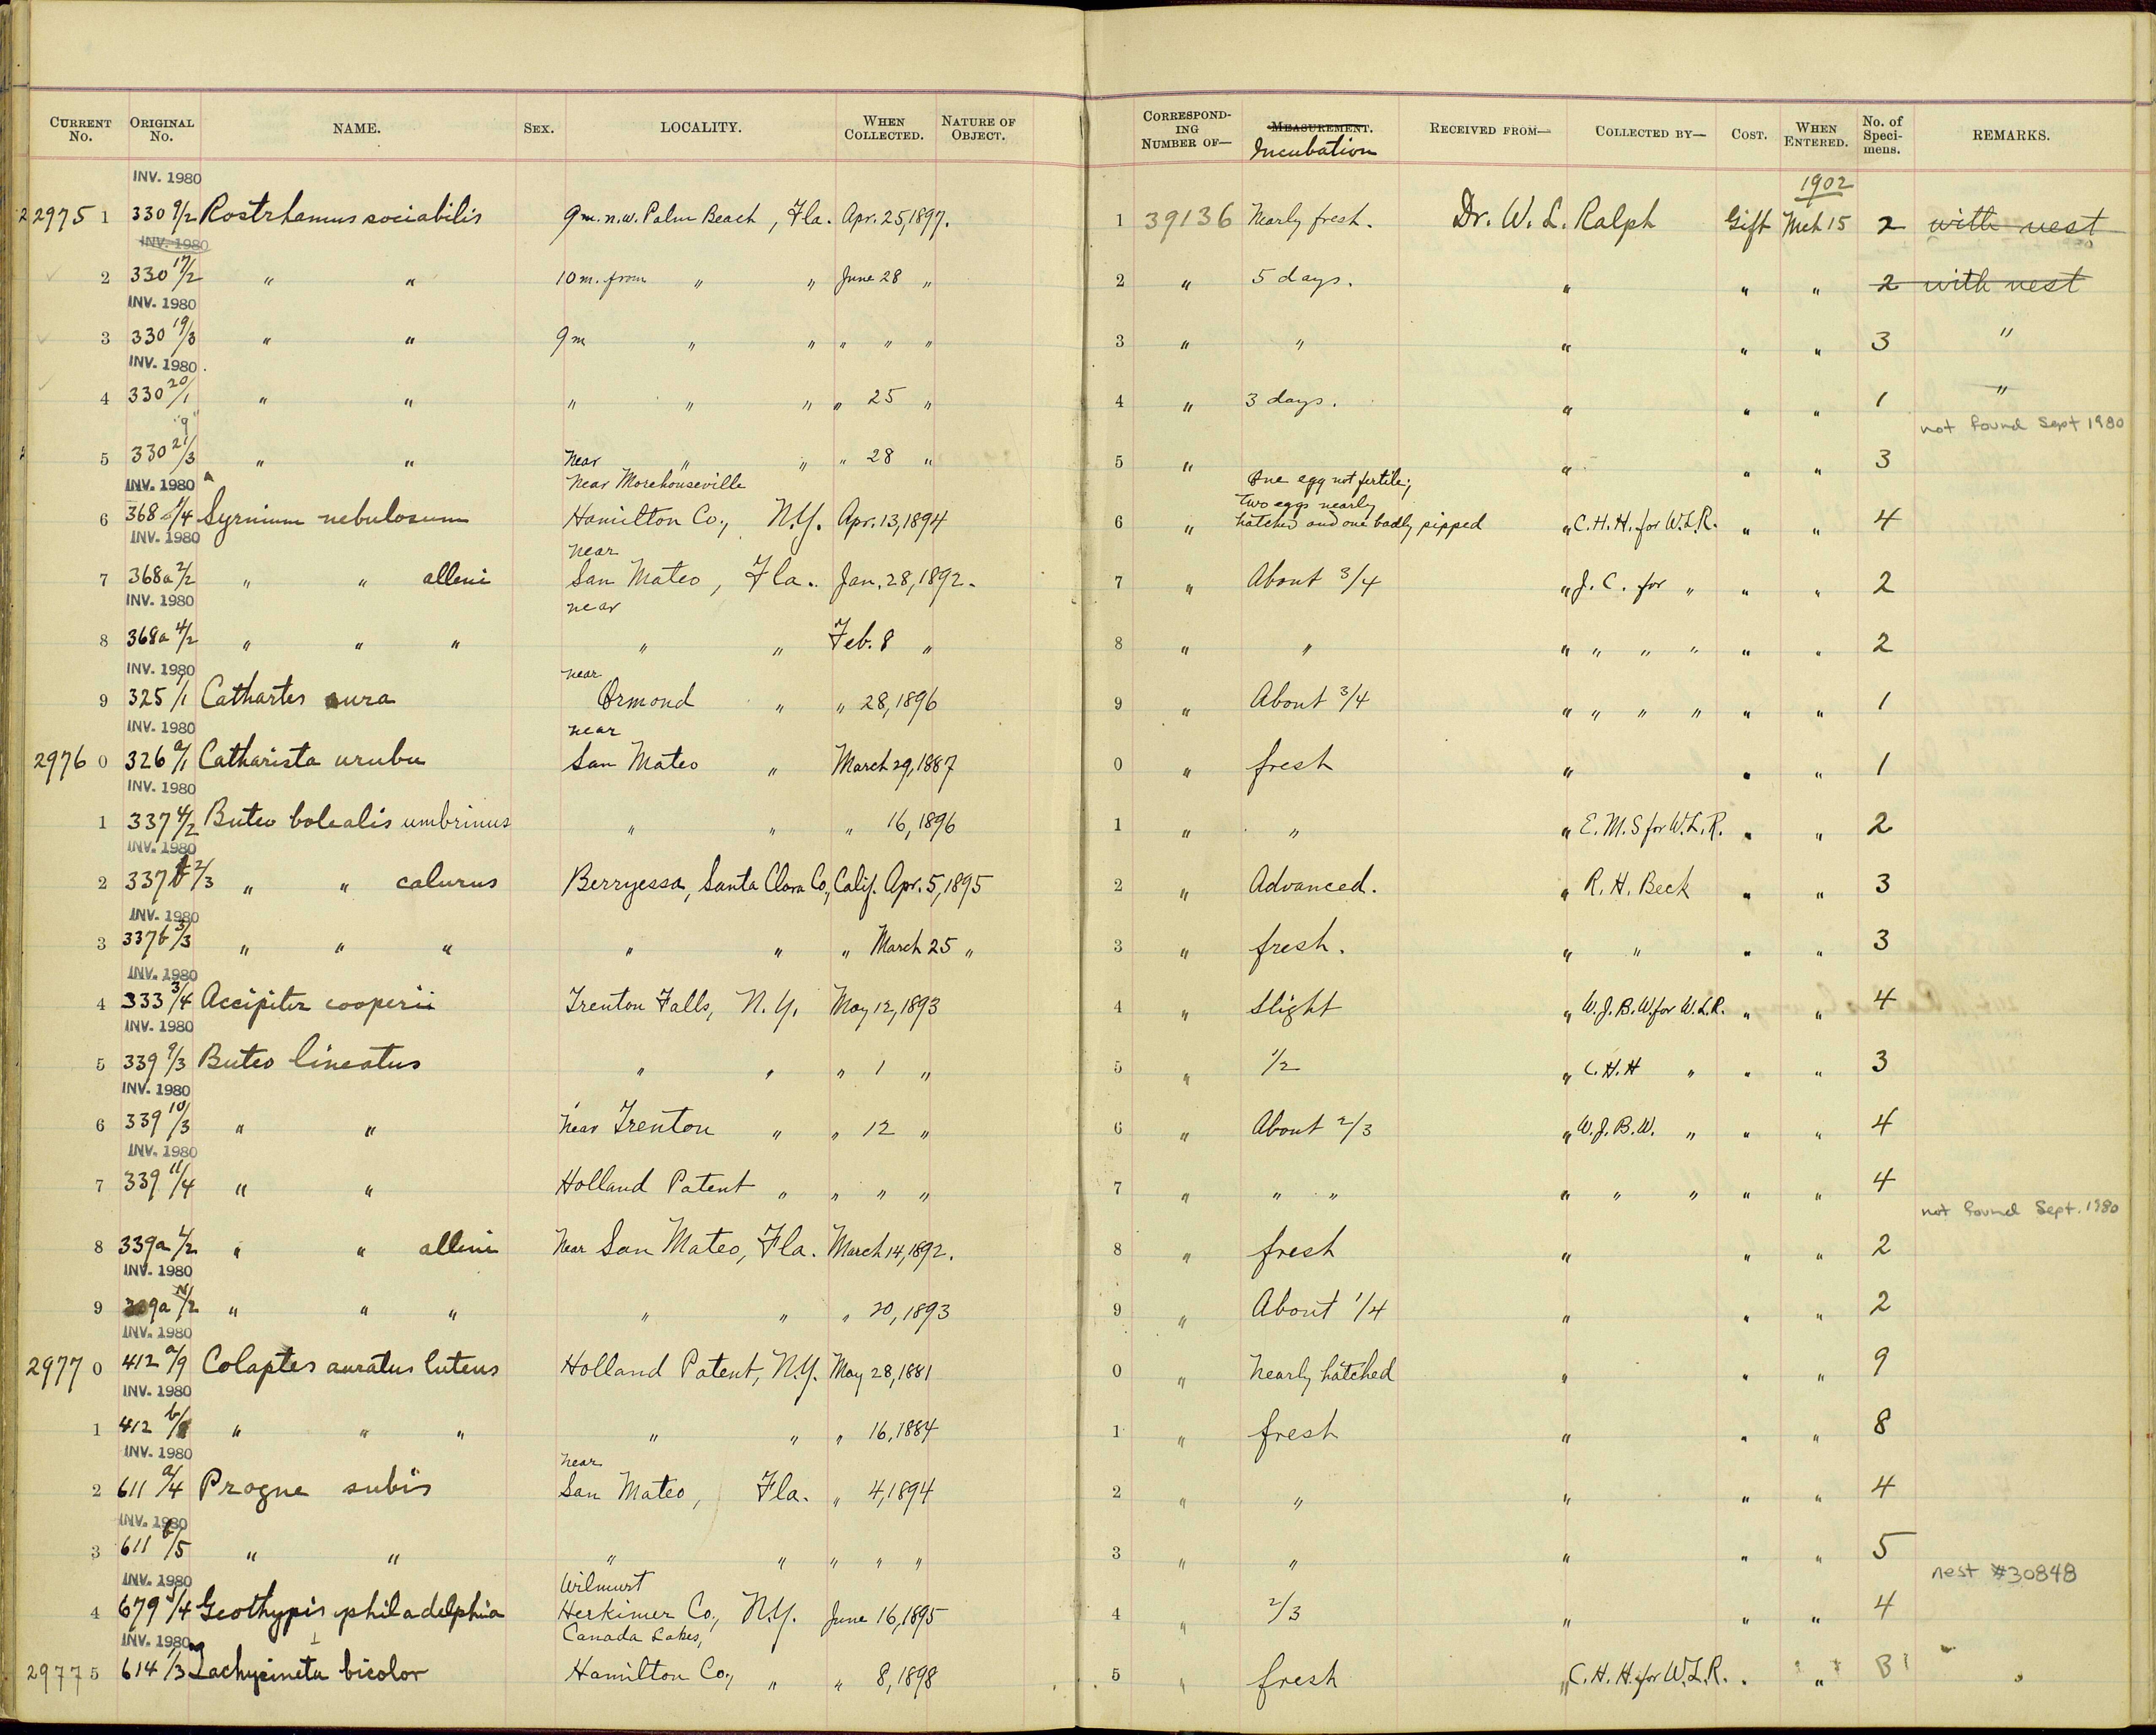 CURRENT No. ORIGINAL No. NAME. SEX. LOCALITY. WHEN COLLECTED. NATURE OF OBJECT. CORRESPONDING NUMBER OF— MEASUREMENT. Incubation RECEIVED FROM— COLLECTED BY— COST. WHEN ENTERED. No. of Specimens. REMARKS.
INV. 1980 1902
22975 1 330 9/2 Rostrhamus sociabilis 9 m. n.w. Palm Beach, Fla. Apr. 25, 1897. 1 39136 Nearly fresh. Dr. W. L. Ralph Gift Mch 15 2 with nest
INV. 1980
2 330 17/2 " " 10 m. from " " June 28 " 2 " 5 days. " " " 2 with nest
INV. 1980
3 330 19/3 " " 9 m " " " " " 3 " " " " " 3 "
INV. 1980
4 330 20/1 " " " " " " 25 " 4 " 3 days. " " " 1 "
not found Sept 1980
5 330 21/3 " " Near " " " 28 " 5 " " " " 3
INV. 1980 Near Morehouseville One egg not fertile;
two eggs nearly
6 368 /4 Syrnium nebulosum Hamilton Co., N.Y. Apr. 13, 1894 6 " hatched and one badly pipped " C. H. H. for W.L.R. " " 4
INV. 1980 near
7 368a 2/2 " " alleni San Mateo, Fla. Jan. 28, 1892. 7 " About 3/4 " J. C. for " " " 2
INV. 1980 near
8 368a 4/2 " " " " " Feb. 8 " 8 " " " " " " " " 2
INV. 1980 near
9 325 1/1 Cathartes aura Ormond " " 28, 1896 9 " About 3/4 " " " " " " 1
INV. 1980 near
2976 0 326 a/1 Catharista urubu San Mateo " March 29, 1887 0 " fresh " " " 1
INV. 1980
1 337 4/2 Buteo bolealis umbrinus " " " 16, 1896 1 " " " E. M. S for W.L.R. " " 2
INV. 1980
2 337b 2/3 " " calurus Berryessa, Santa Clara Co., Calif. Apr. 5, 1895 2 " Advanced. " R. H. Beck " " 3
INV. 1980
3 337b 3/3 " " " " " " March 25 " 3 " fresh. " " " " 3
INV. 1980
4 333 3/4 Accipiter cooperii Trenton Falls, N.Y. May 12, 1893 4 " Slight " W. J. B. W. for W.L.R. " " 4
INV. 1980
5 339 9/3 Buteo lineatus " " " 1 " 5 " 1/2 " C. H. H " " " 3
INV. 1980
6 339 10/3 " " Near Trenton " " 12 " 6 " About 2/3 " W. J. B. W. " " " 4
INV. 1980
7 339 11/4 " " Holland Patent " " " " 7 " " " " " " " " 4
not found Sept. 1980
8 339a /2 " " alleni Near San Mateo, Fla. March 14, 1892. 8 " fresh " " " 2
INV. 1980
9 339a /2 " " " " " " 20, 1893 9 " About 1/4 " " " 2
INV. 1980
2977 0 412 a/9 Colaptes auratus luteus Holland Patent, N.Y. May 28, 1881 0 " Nearly hatched " " " 9
INV. 1980
1 412 b/8 " " " " " " 16, 1884 1 " fresh " " " 8
INV. 1980 near
2 611 a/4 Progne subis San Mateo, Fla. " 4, 1894 2 " " " " " 4
INV. 1980
3 611 b/5 " " " " " " " 3 " " " " " 5
INV. 1980 Wilmurt nest #30848
4 679 /4 Geothypis philadelphia Herkimer Co., N.Y. June 16, 1895 4 " 2/3 " " " 4
INV. 1980 Canada Lakes,
29775 614 1/3 Tachycineta bicolor Hamilton Co., " " 8, 1898 5 " fresh " C. H. H. for W.L.R. " "